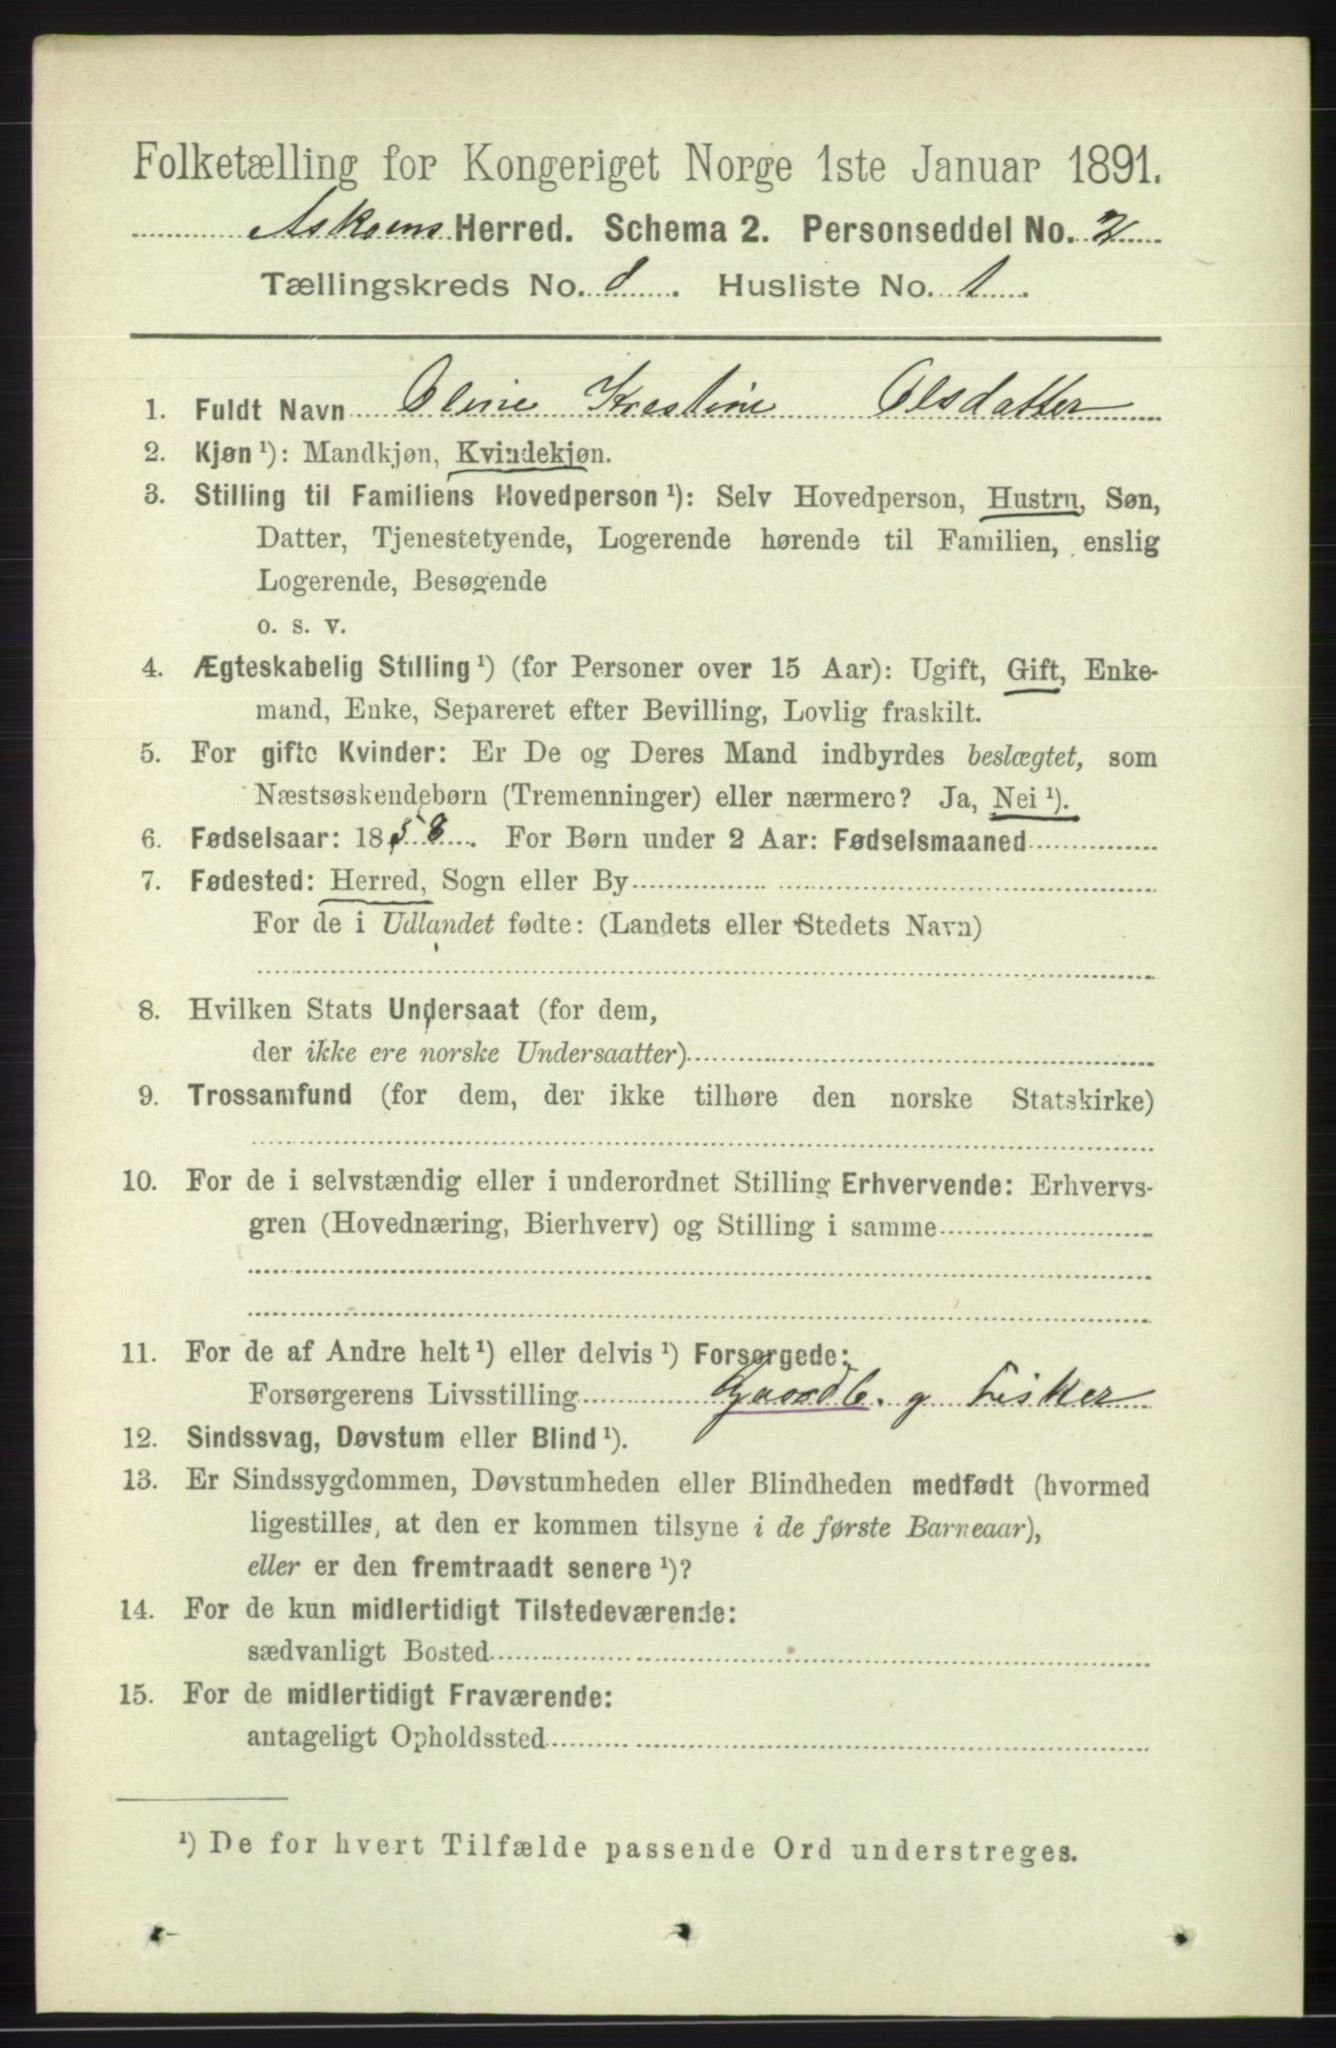 Folketælling for Kongeriget Norge 1ste Januar 1891.
Askøens Herred. Schema 2. Personseddel No. 2
Tællingskreds No. 8. Husliste No. 1.
1. Fuldt Navn Oline Krestine Olsdatter
2. Kjøn¹): Mandkjøn, Kvindekjøn.
3. Stilling til Familiens Hovedperson¹): Selv Hovedperson, Hustru, Søn,
Datter, Tjenestetyende, Logerende hørende til Familien, enslig
Logerende, Besøgende
o. s. v.
4. Ægteskabelig Stilling¹) (for Personer over 15 Aar): Ugift, Gift, Enke-
mand, Enke, Separeret efter Bevilling, Lovlig fraskilt.
5. For gifte Kvinder: Er De og Deres Mand indbyrdes beslægtet, som
Næstsøskendebørn (Tremenninger) eller nærmere? Ja, Nei¹).
6. Fødselsaar: 1858. For Børn under 2 Aar: Fødselsmaaned
7. Fødested: Herred, Sogn eller By
For de i Udlandet fødte: (Landets eller Stedets Navn)
8. Hvilken Stats Undersaat (for dem,
der ikke ere norske Undersaatter)
9. Trossamfund (for dem, der ikke tilhøre den norske Statskirke)
10. For de i selvstændig eller i underordnet Stilling Erhvervende: Erhvervs-
gren (Hovednæring, Bierhverv) og Stilling i samme
11. For de af Andre helt¹) eller delvis¹) Forsørgede:
Forsørgerens Livsstilling Gaardb. g Fisker
12. Sindssvag, Døvstum eller Blind¹).
13. Er Sindssygdommen, Døvstumheden eller Blindheden medfødt (hvormed
ligestilles, at den er kommen tilsyne i de første Barneaar),
eller er den fremtraadt senere¹)?
14. For de kun midlertidigt Tilstedeværende:
sædvanligt Bosted
15. For de midlertidigt Fraværende:
antageligt Opholdssted
¹) De for hvert Tilfælde passende Ord understreges.